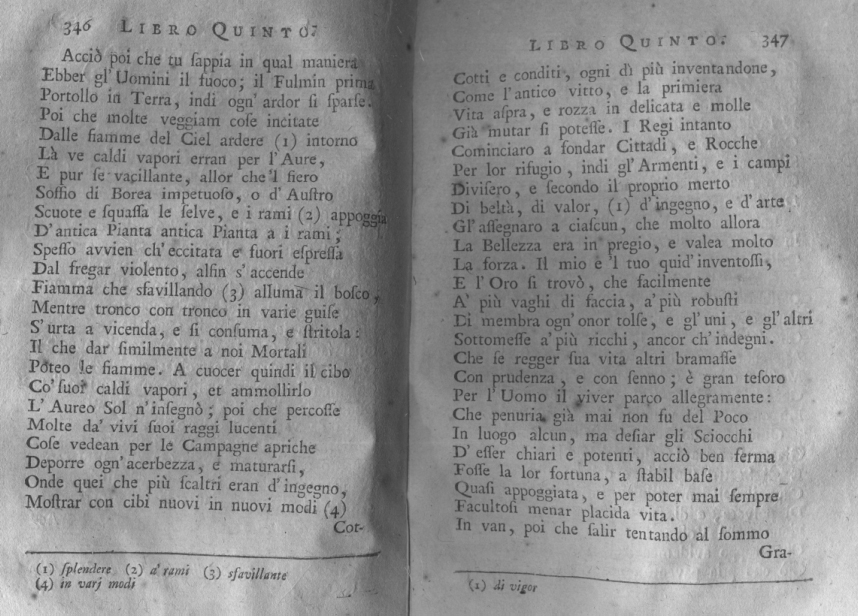 346 LIBRO QUINTO.
Acciò poi che tu ſappia in qual maniera
Ebber gl'Uomini il fuoco; il Fulmin prima
Portollo in Terra, indi ogn'ardor ſi ſparſe.
Poi che molte veggiam coſe incitate
Dalle fiamme del Ciel ardere (1) intorno
Là ve caldi vapori erran per l'Aure,
E pur ſe vacillante, allor che 'l fiero
Soffio di Borea impetuoſo, o d'Auſtro
Scuote e ſquaſſa le ſelve, e i rami (2) appoggia
D'antica Pianta antica Pianta a i rami;
Speſſo avvien ch'eccitata e fuori eſpreſſa
Dal fregar violento, alfin s'accende
Fiamma che sfavillando (3) alluma il boſco,
Mentre tronco con tronco in varie guiſe
S'urta a vicenda, e ſi conſuma, e ſtritola:
Il che dar ſimilmente a noi Mortali
Poteo le fiamme. A cuocer quindi il cibo
Co'ſuoi caldi vapori, et ammollirlo
L'Aureo Sol n'inſegnò; poi che percoſſe
Molte da'vivi ſuoi raggi lucenti
Coſe vedean per le Campagne apriche
Deporre ogn'acerbezza, e maturarſi,
Onde quei che più ſcaltri eran d'ingegno,
Moſtrar con cibi nuovi in nuovi modi (4)
Cot-
(1) ſplendere (2) a'rami (3) sfavillante
(4) in varj modi
LIBRO QUINTO. 347
Cotti e conditi, ogni dì più inventandone,
Come l'antico vitto, e la primiera
Vita aſpra, e rozza in delicata e molle
Già mutar ſi poteſſe. I Regi intanto
Cominciaro a fondar Cittadi, e Rocche
Per lor rifugio, indi gl'Armenti, e i campi
Diviſero, e ſecondo il proprio merto
Di beltà, di valor, (1) d'ingegno, e d'arte
Gl'aſſegnaro a ciaſcun, che molto allora
La Bellezza era in pregio, e valea molto
La forza. Il mio e 'l tuo quid'inventoſſi,
E l'Oro ſi trovò, che facilmente
A' più vaghi di faccia, a'più robuſti
Di membra ogn'onor tolſe, e gl'uni, e gl'altri
Sottomeſſe a'più ricchi, ancor ch'indegni.
Che ſe regger ſua vita altri bramaſſe
Con prudenza, e con ſenno; è gran teſoro
Per l'Uomo il viver parco allegramente:
Che penuria già mai non fu del Poco
In luogo alcun, ma deſiar gli Sciocchi
D'eſſer chiari e potenti, acciò ben ferma
Foſſe la lor fortuna, a ſtabil baſe
Quaſi appoggiata, e per poter mai ſempre
Facultoſi menar placida vita.
In van, poi che ſalir tentando al ſommo
Gra-
(1) di vigor